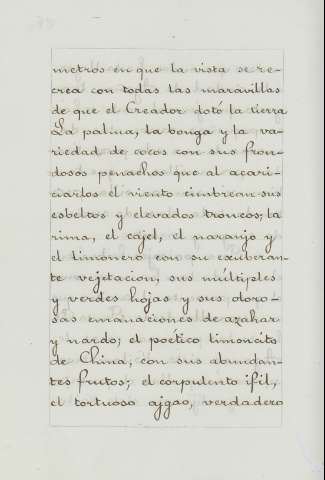 metros en que la vista se re-
crea con todas las maravillas
de que el Creador dotó la tierra
La palma, la bonga y la va-
riedad de cocos con sus fron-
dosos penachos que al acari-
ciarlos el viento cimbrean sus
esbeltos y elevados troncos; la
rima, el cajel, el naranjo y
el limonero con su exuberan-
te vejetacion, sus múltiples
y verdes hojas y sus oloro-
sas emanaciones de azahar
y nardo; el poético limoncito
de China, con sus abundan-
tes frutos; el corpulento ifil,
el tortuoso ajgao, verdadero